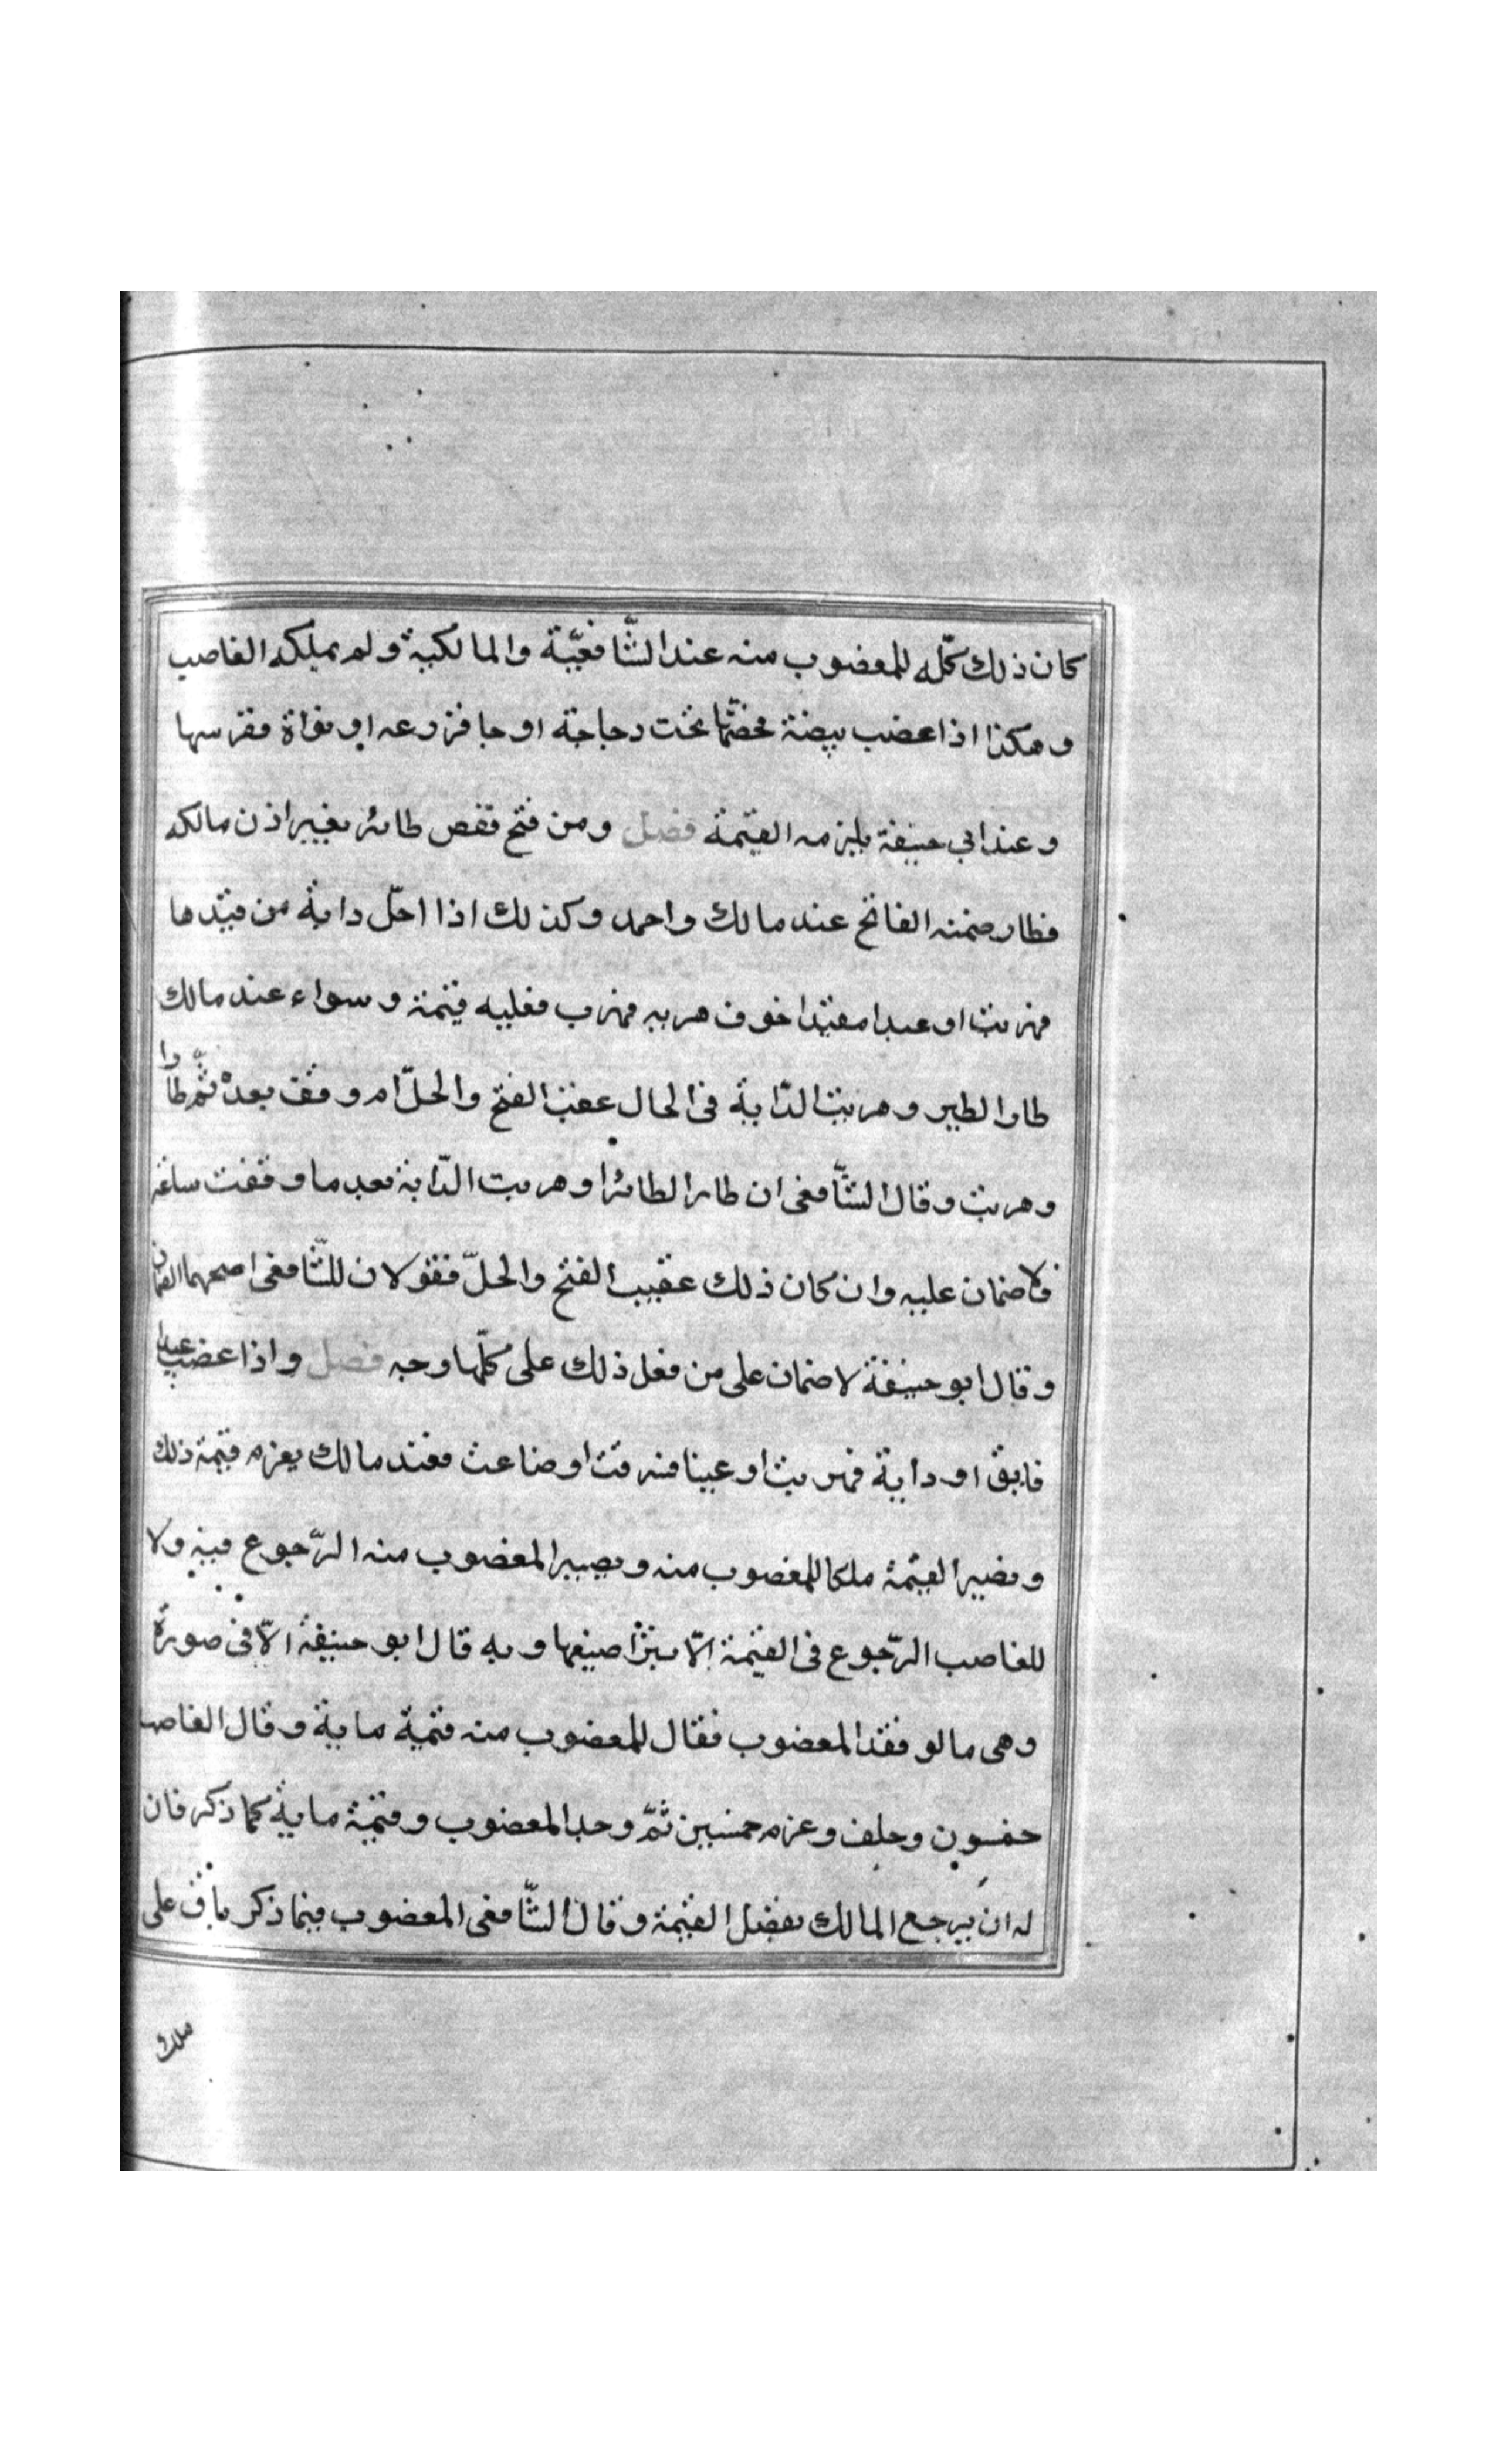 كان ذلك كلّه للمغضوب منه عند الشّافعيّة والمالكية ولم يملكه الغاصب
وهكذا اذا غصب بيضة فحضنها تحت دجاجة او حبا فزرعه او نواة فغرسها
وعند ابي حنيفة يلزمه القيمة فصل ومن فتح قفص طائر بغير اذن مالكه
فطار ضمنه الفاتح عند مالك واحمد وكذلك اذا احلّ دابة من قيدها
فهربت او عبدا مقيّدا خوف هربه فهرب فعليه قيمة وسواء عند مالك
طار الطير وهربت الدّابة في الحال عقب الفتح والحلّ ام وقف بعده ثمّ طار
وهربت وقال الشّافعى ان طار الطائر او هربت الدّابة بعد ما وقفت ساعة
فلا ضمان عليه وان كان ذلك عقيب الفتح والحلّ فقولان للشّافعى اصحهما الضمان
وقال ابو حنيفة لا ضمان على من فعل ذلك على كلّها وجه فصل واذا غضب عبدا
فابق او دابة فهربت او عينا فسرقت او ضاعت فعند مالك يغرم قيمة ذلك
وتصير القيمة ملكا للمغصوب منه ويصير المغضوب منه الرّجوع فيه ولا
للغاصب الرّجوع فى القيمة الّا بتراضيهما وبه قال ابو حنيفة الّا فى صورة
وهى ما لو فقد المغضوب فقال للمغضوب منه قيمة ماية وقال الغاصب
خمسون وحلف وغرم خمسين ثمّ وجد المغضوب وقيمة ماية كما ذكر فان
له ان يرجع المالك بفضل القيمة وقال الشّافعى المغضوب فيما ذكر باق على
ملك